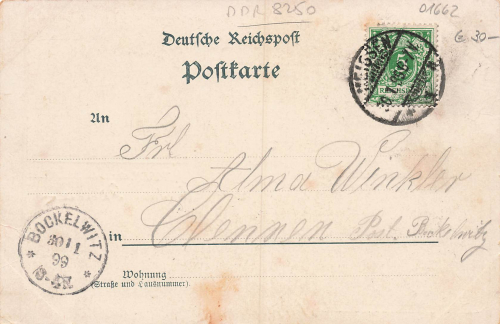 DDR 8250
01662
€ 30-
Deutsche Reichspost
Postkarte
MEISSEN
5
REICHSPOST
An
Frl.
Alma Winkler
in Clennen Post. Bockelwitz
BOCKELWITZ
30 11
99
Wohnung
(Straße und Hausnummer).